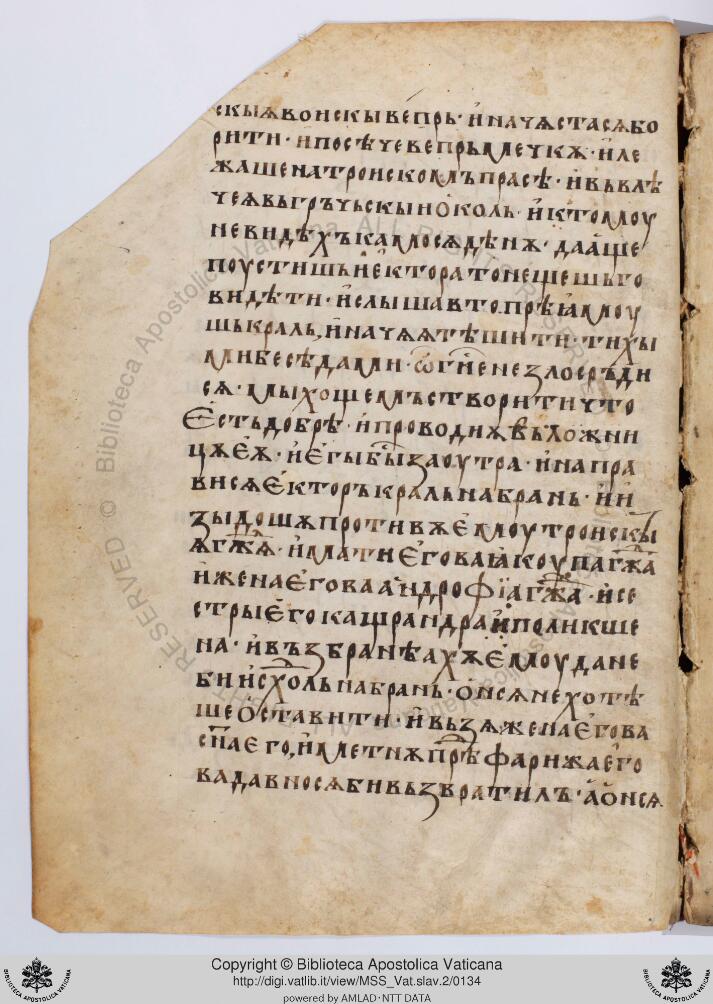 скыѫ воискы вепрь· и начѧстасѧ бо
рити· и посѣче вепрь мечкѫ· и ле
жаше на троискомъ прасѣ· и вьвлѣ
чеѧ вь гръчьскыи околь· и к томоу
не видѣхъ камо сѧ дѣнѫ· да аще
поустишъ и ектора то не щешь го
видѣти· и слышав то прѣꙗмоу
шь краль, и начѧ ѧ тѣшити· тихы
ми бесѣдами· ѡ гн҃е не злосръди
сѧ· мы хощемъ створити что
естъ добрѣ· и проводиѫ въ ложни
цѫ еѫ· и егы бы҃ заоутра· и напра
ви сѧ екторъ краль на брань· и и
зыдошѫ противѫ емоу троискы
ѧ гж҃ѧ· и мати егова ꙗкоупа гж҃а
и жена егова анⷣдрофиа гж҃а· и се
стры его кашрандра и поликше
на· и въ збранѣахѫ емоу да не
би исхⷣолъ на брань· он сѧ не хотѣ
ше оставити· и вьзѧ жена егова
сн҃а его, и метнѫ прѣⷣ фарижа его
ва да вносѧ би вьзвратилъ· а он сѧ
Copyright © Biblioteca Apostolica Vaticana
http://digi.vatlib.it/view/MSS_Vat.slav.2/0134
powered by AMLAD·NTT DATA